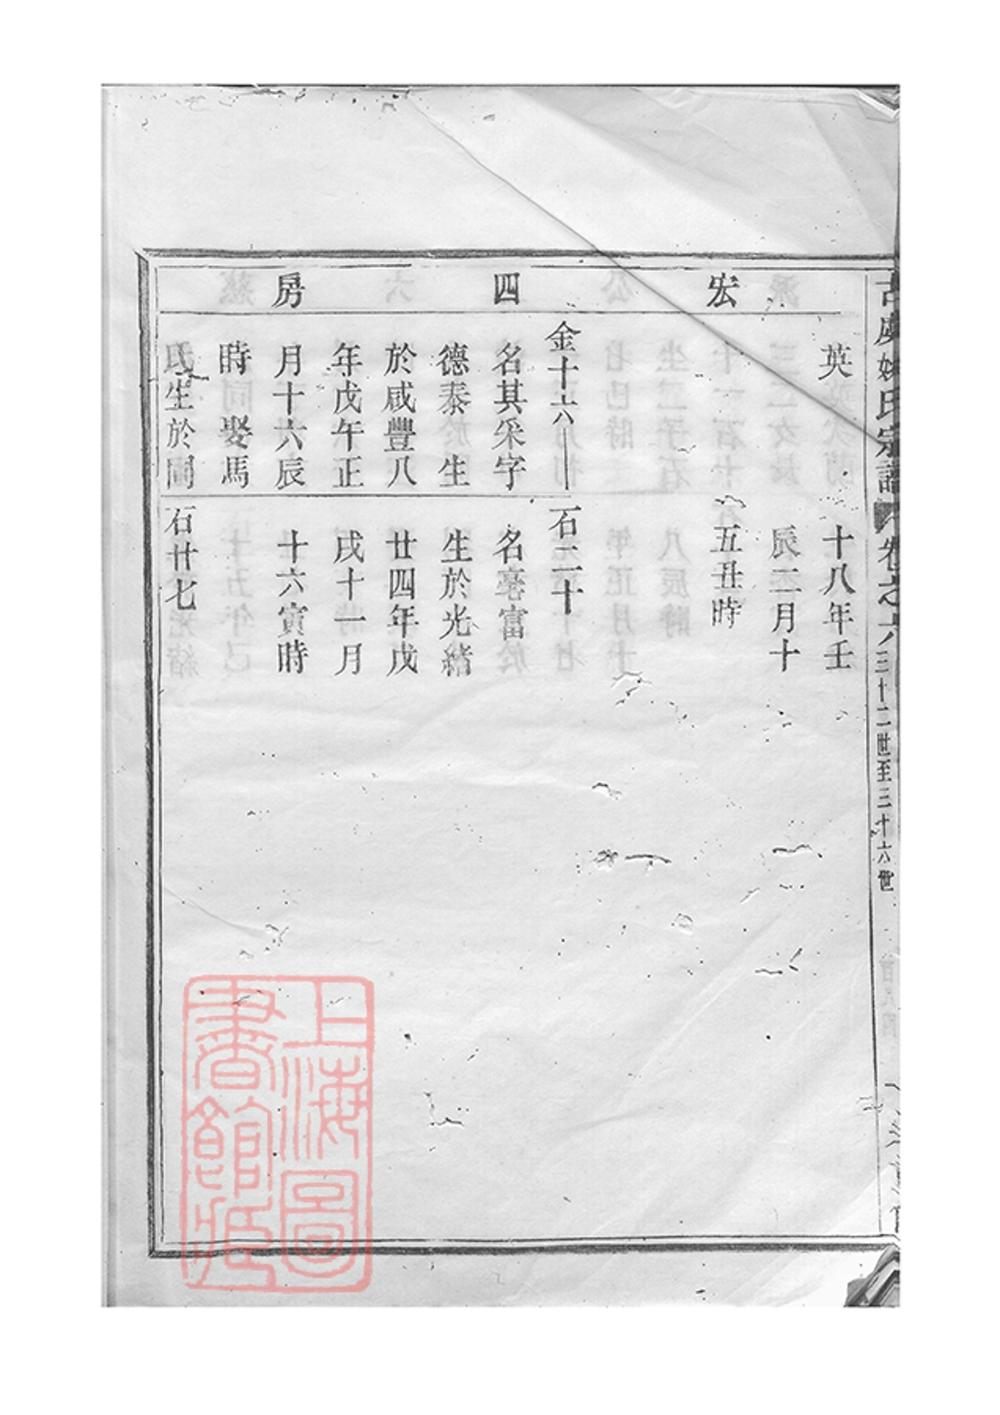 古虞姚氏宗譜 卷之六 三十二世至三十六世
宏 四 房
英
十八年壬
辰二月十
五丑時
金十六 石二十
名其采字
德泰生
於咸豐八
年戊午正
月十六辰
時 娶馬
氏生於同
名毫富
生於光緒
廿四年戊
戌十一月
十六寅時
石廿七
上海圖
書館藏